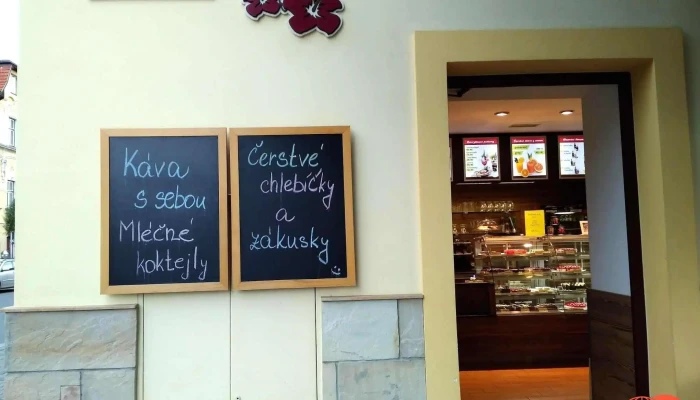 Káva
s sebou
Mléčné
koktejly
Čerstvé
chlebíčky
a
zákusky